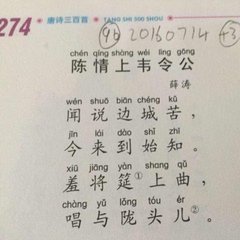 274
唐诗三百首 · TANG SHI 300 SHOU
96 20160714 +3
chén qíng shàng wéi lìng gōng
陈情上韦令公
薛涛
wén shuō biān chéng kǔ
闻说边城苦，
jīn lái dào shǐ zhī
今来到始知。
xiū jiāng yán shàng qǔ
羞将筵①上曲，
chàng yǔ lǒng tóu ér
唱与陇头儿②。